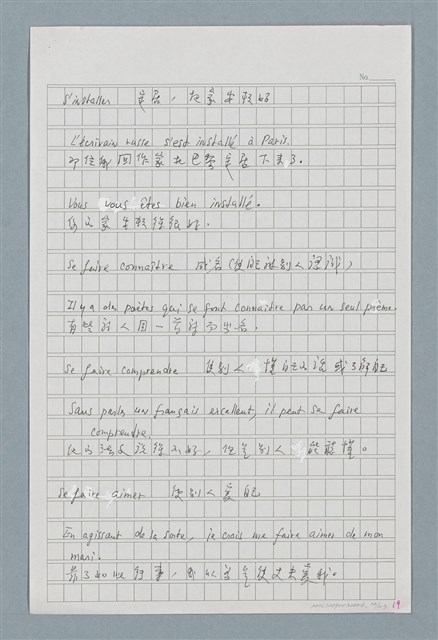 No.
S'installer 定居，把家安頓好
L'écrivain russe s'est installé à Paris.
那位俄國作家在巴黎定居下來了。
Vous vous êtes bien installé.
你的家安頓得很好.
Se faire connaître 成名(使能被別人認識)
Il y a des poètes qui se font connaître par un seul poème.
有些詩人因一首詩而出名.
Se faire comprendre 使別人懂自己的話或了解自己
Sans parler un français excellent, il peut se faire
comprendre.
他的法文說得不好，但是別人能聽懂。
Se faire aimer 使別人愛自己
En agissant de la sorte, je crois me faire aimer de mon
mari.
為了如此行事，我以為是使丈夫愛我.
19